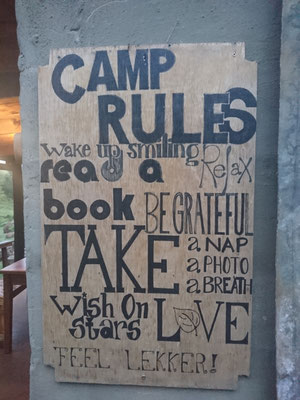 CAMP
RULES
wake up smiling
read a Relax
book BE GRATEFUL
TAKE a NAP
a PHOTO
a BREATH
Wish On
stars LOVE
FEEL LEKKER!